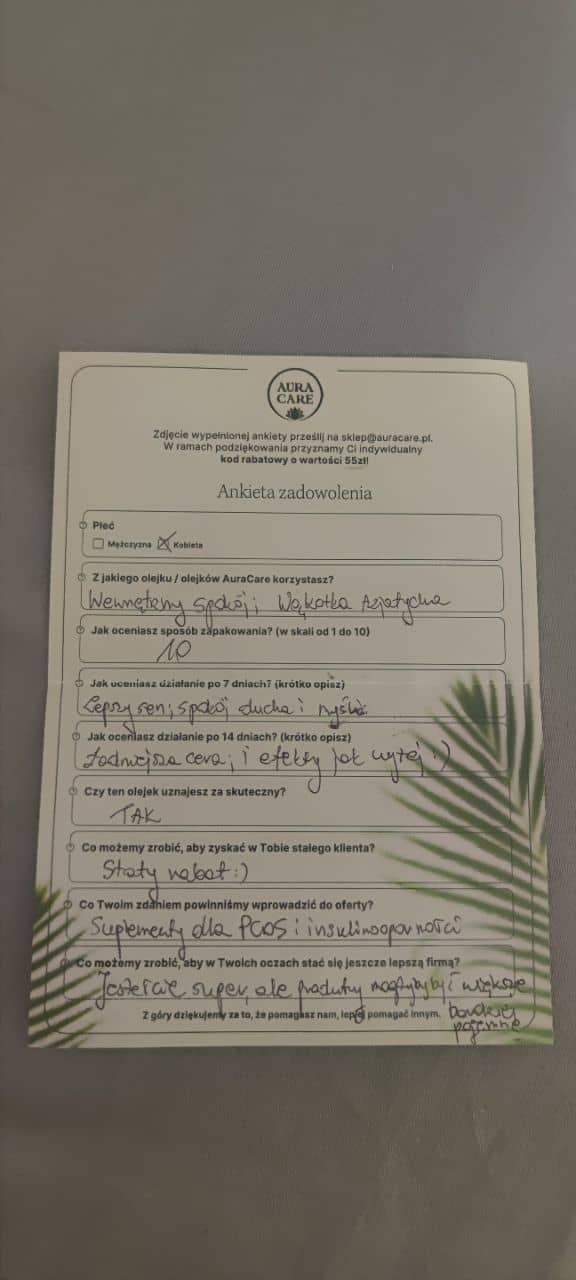 AURA
CARE
Zdjęcie wypełnionej ankiety prześlij na sklep@auracare.pl.
W ramach podziękowania przyznamy Ci indywidualny
kod rabatowy o wartości 55zł!
Ankieta zadowolenia
Płeć
Mężczyzna Kobieta
Z jakiego olejku / olejków AuraCare korzystasz?
Wewnętrzny spokój; Wąkotka Azjatycka
Jak oceniasz sposób zapakowania? (w skali od 1 do 10)
10
Jak oceniasz działanie po 7 dniach? (krótko opisz)
Lepszy sen; spokój ducha i myśli
Jak oceniasz działanie po 14 dniach? (krótko opisz)
Ładniejsza cera; i efekty jak wyżej :)
Czy ten olejek uznajesz za skuteczny?
TAK
Co możemy zrobić, aby zyskać w Tobie stałego klienta?
Stały rabat :)
Co Twoim zdaniem powinniśmy wprowadzić do oferty?
Suplementy dla PCOS i insulinooporności
Co możemy zrobić, aby w Twoich oczach stać się jeszcze lepszą firmą?
Jesteście super, ale produkty mogłyby być większe
Z góry dziękujemy za to, że pomagasz nam, lepiej pomagać innym.
bardziej
pojemne